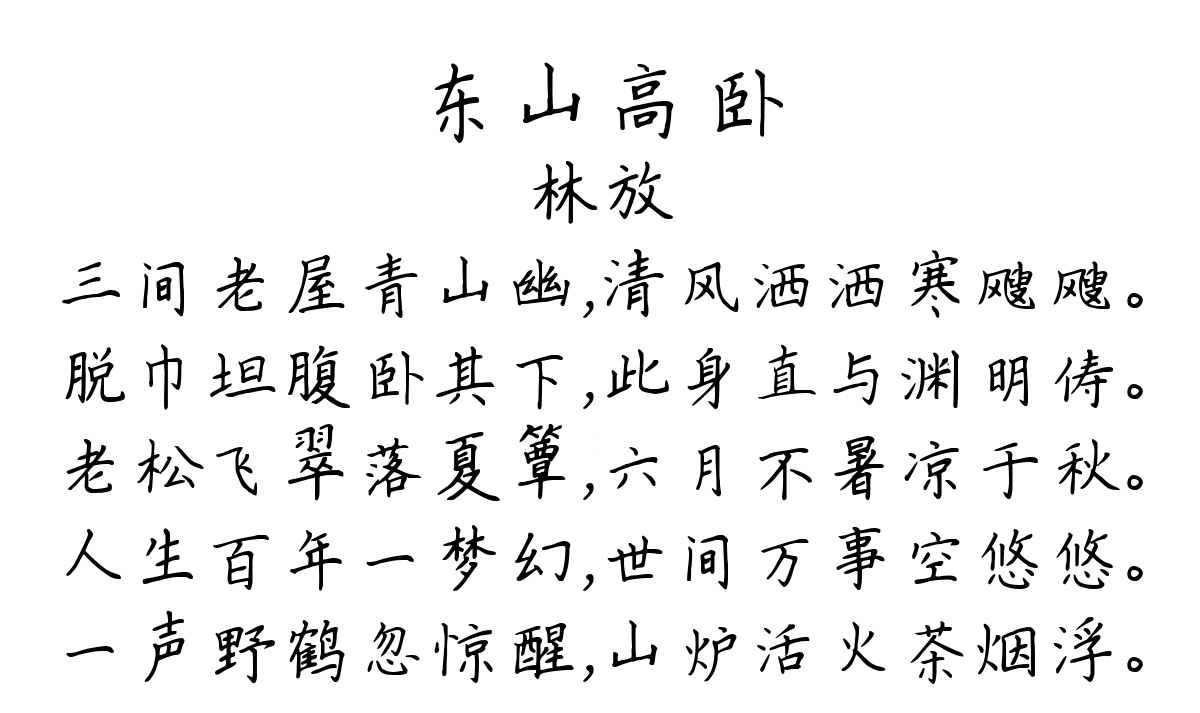 东山高卧
林放
三间老屋青山幽,清风洒洒寒飕飕。
脱巾坦腹卧其下,此身直与渊明俦。
老松飞翠落夏簟,六月不暑凉于秋。
人生百年一梦幻,世间万事空悠悠。
一声野鹤忽惊醒,山炉活火茶烟浮。